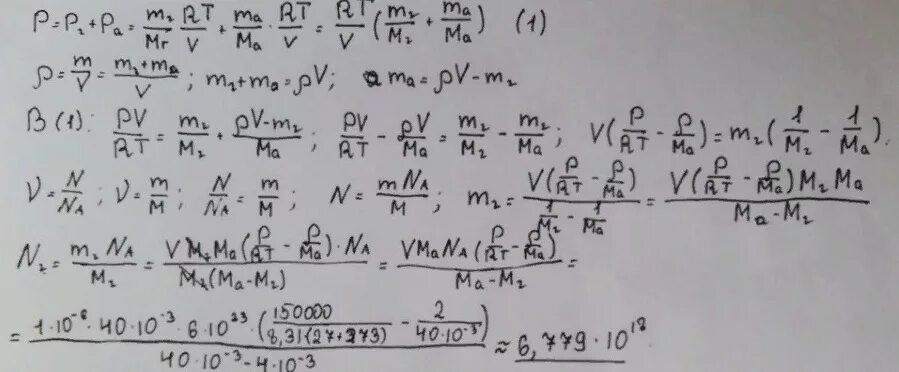 P = P₂ + Pₐ = m₂/Mг · RT/V + mₐ/Mₐ · RT/V = RT/V (m₂/M₂ + mₐ/Mₐ) (1)
ρ = m/V = (m₂ + mₐ)/V ; m₂ + mₐ = ρV ; mₐ = ρV - m₂
В (1): PV/RT = m₂/M₂ + (ρV - m₂)/Mₐ ; PV/RT - ρV/Mₐ = m₂/M₂ - m₂/Mₐ ; V(P/RT - ρ/Mₐ) = m₂(1/M₂ - 1/Mₐ).
ν = N/Nᴀ ; ν = m/M ; N/Nᴀ = m/M ; N = mNᴀ/M ; m₂ = V(P/RT - ρ/Mₐ)/(1/M₂ - 1/Mₐ) = V(P/RT - ρ/Mₐ)M₂Mₐ/(Mₐ - M₂)
N₂ = m₂Nᴀ/M₂ = VM₂Mₐ(P/RT - ρ/Mₐ)·Nᴀ/(M₂(Mₐ - M₂)) = VMₐNᴀ(P/RT - ρ/Mₐ)/(Mₐ - M₂) =
= 1·10⁻⁶·40·10⁻³·6·10²³·(150000/(8,31(27+273)) - 2/(40·10⁻³))/(40·10⁻³ - 4·10⁻³) ≈ 6,779·10¹⁸